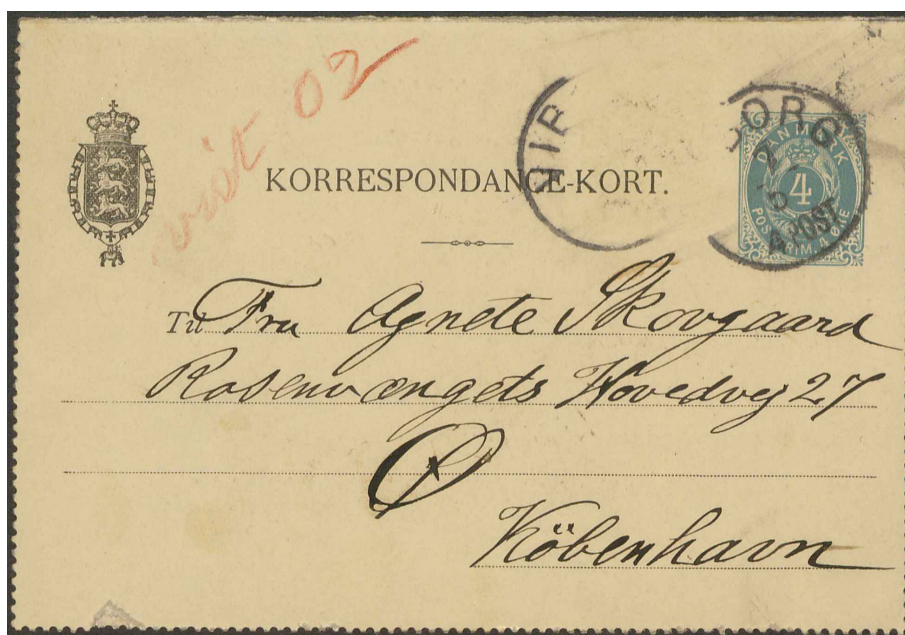 vist 02
KORRESPONDANCE-KORT.
VIB
BORG
DANMARK
4
POSTFRIM. 4 ØIE
POST
Til Fru Agnete Skovgaard
Rosenvængets Hovedvej 27
Ø
Köbenhavn